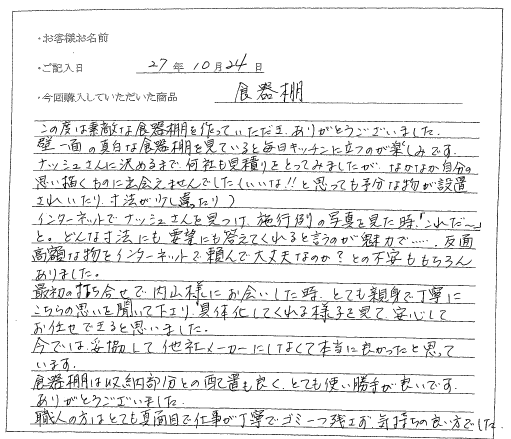 ・お客様お名前
・ご記入日 27年 10月 24日
・今回購入していただいた商品 食器棚
この度は素敵な食器棚を作っていただき、ありがとうございました。
壁一面の真白な食器棚を見ていると毎日キッチンに立つのが楽しみです。
ナッシュさんに決めるまで、何社も見積りをとってみましたが、なかなか自分の
思い描くものに出会えませんでした(いいな!!と思っても余分な物が設置
されいたり、寸法が少し違ったり)
インターネットでナッシュさんを見つけ、施行例の写真を見た時、「これだ〜」
と。どんな寸法にも要望にも答えてくれると言うのが魅力で……、反面
高額な物をインターネットで頼んで大丈夫なのか?との不安ももちろん
ありました。
最初の打ち合せで内山様にお会いした時、とても親身で丁寧に
こちらの思いを聞いて下さり、具体化してくれる様子を見て、安心して
お任せできると思いました。
今では、妥協して他社メーカーにしなくて本当に良かったと思って
います。
食器棚は収納部分との配置も良く、とても使い勝手が良いです。
ありがとうございました。
職人の方はとても真面目で仕事が丁寧でゴミ一つ残さず、気持ちの良い方でした。